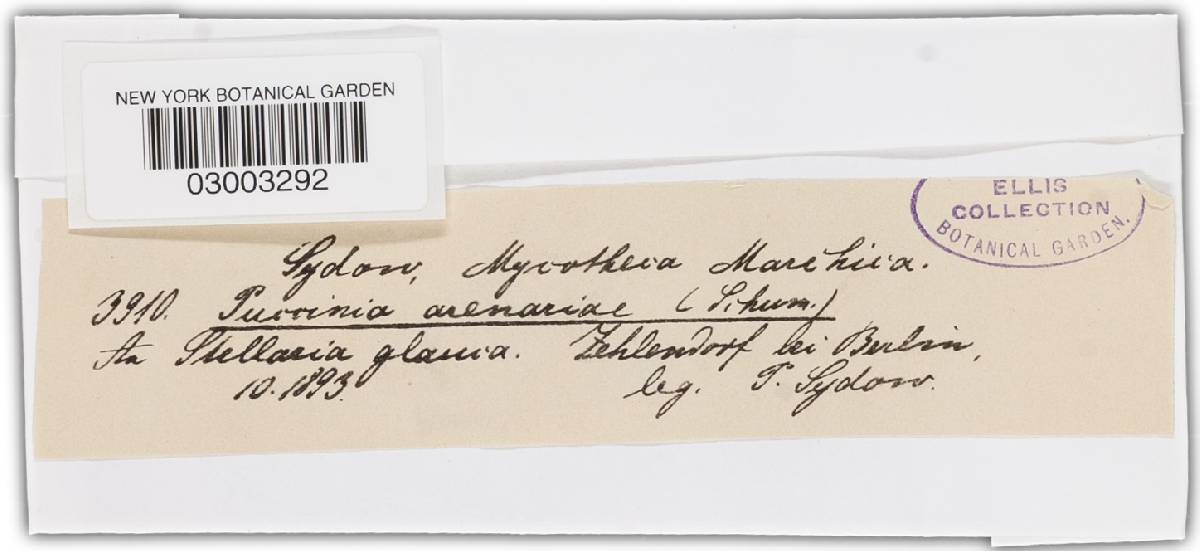 NEW YORK BOTANICAL GARDEN
03003292
ELLIS
COLLECTION
BOTANICAL GARDEN.
Sydow, Mycotheca Marchica.
3910. Puccinia arenariae (Schum.)
An Stellaria glauca. Zehlendorf bei Berlin,
10.1893. leg. P. Sydow.